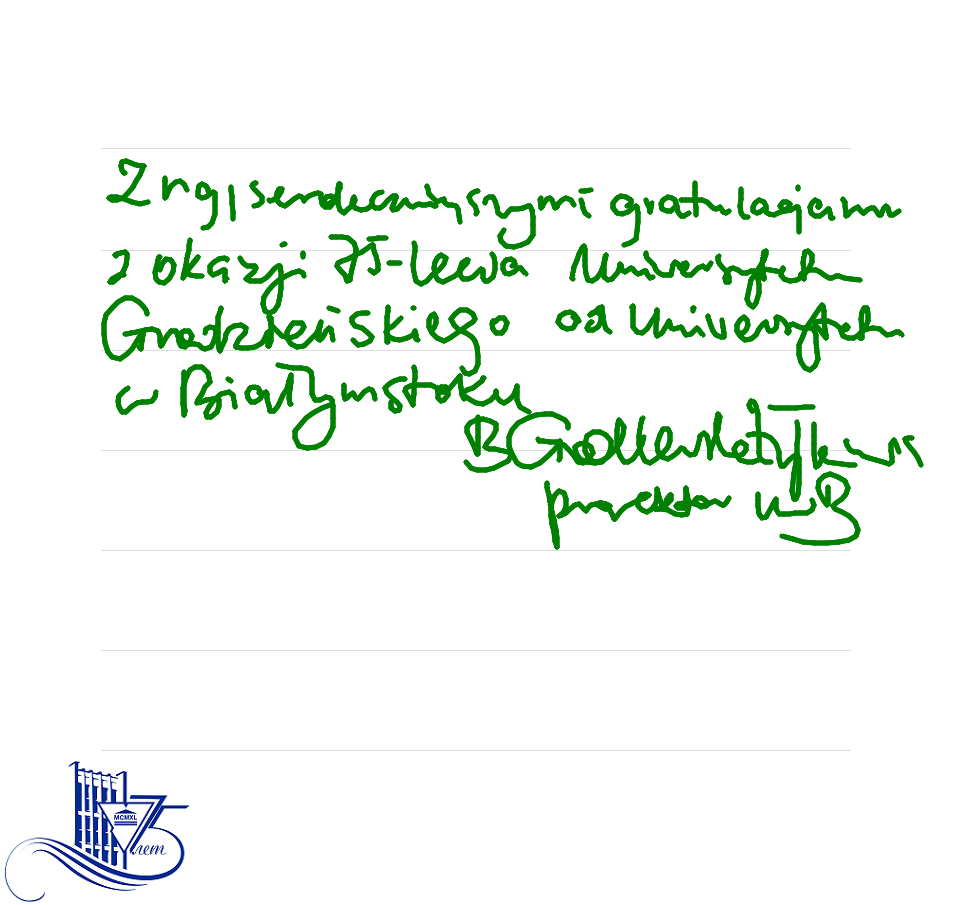 Z najserdeczniejszymi gratulacjami
z okazji 75-lecia Uniwersytetu
Grodzieńskiego od Uniwersytetu
w Białymstoku
prorektor UwB
MCMXL
75 лет